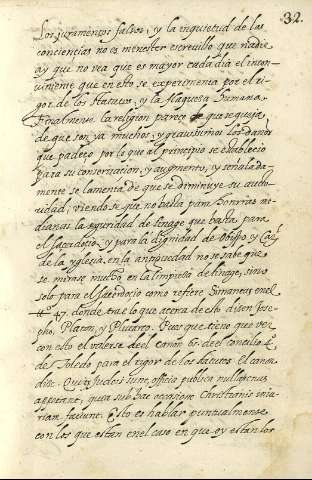 32.
Los juramentos falsos, y la inquietud de las
conciencias no es menester escreuillo que nadie
ay que no vea que es mayor cada dia el incon-
uiniente que en esto se experimenta por el ri-
gor de los statutos, y la flaqueza humana.
Finalmente la religion pareçe que se quexa,
de que son ya muchos, y grauissimos los daños
que padeçe por lo que al principio se establecio
para su conseruacion, y augmento, y señalada-
mente se lamenta de que se diminuye su auto-
ridad, viendo se que no basta para honrras me-
dianas la seguridad de linage que basta para
el sacerdocio, y para la dignidad de Obispo y
de la yglesia. en la antiguedad no se sabe que
se mirase mucho en la limpieza de linage, sino
solo para el sacerdocio como refiere Simancas en el
47. donde trae lo que acerca de esto dizen Jose-
pho, Platon, y Plutarco. Pues que tiene que ver
con esto el valerse del Canon 65. del concilio 4.
de Toledo para el rigor de los statutos. El canon
dise. Qui ex Judæis sunt, officia publica nullatenus
appetant, quia sub hac occasione Christianis iniu-
riam faciunt. Esto es hablar puntualmente
con los que estan en el caso en que oy estan los